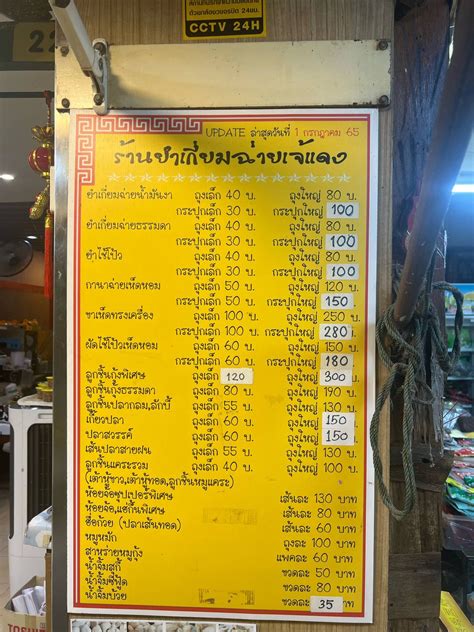 CCTV 24H
22
UPDATE ล่าสุดวันที่ 1 กรกฎาคม 65
ร้านยำเกี่ยมฉ่ายเจ้แดง
ยำเกี่ยมฉ่ายน้ำมันงา ถุงเล็ก 40 บ. ถุงใหญ่ 80 บ.
กระปุกเล็ก 30 บ. กระปุกใหญ่ 100
ยำเกี่ยมฉ่ายธรรมดา ถุงเล็ก 40 บ. ถุงใหญ่ 80 บ.
กระปุกเล็ก 30 บ. กระปุกใหญ่ 100
ยำไช้โป้ว ถุงเล็ก 40 บ. ถุงใหญ่ 80 บ.
กระปุกเล็ก 30 บ. กระปุกใหญ่ 100
กานาฉ่ายเห็ดหอม ถุงเล็ก 50 บ. ถุงใหญ่ 120 บ.
กระปุกเล็ก 50 บ. กระปุกใหญ่ 150
ขาเห็ดทรงเครื่อง ถุงเล็ก 100 บ. ถุงใหญ่ 250 บ.
กระปุกเล็ก 100 บ. กระปุกใหญ่ 280
ผัดไช้โป้วเห็ดหอม ถุงเล็ก 60 บ. ถุงใหญ่ 150 บ.
กระปุกเล็ก 60 บ. กระปุกใหญ่ 180
ลูกชิ้นกุ้งพิเศษ ถุงเล็ก 120 ถุงใหญ่ 300 บ.
ลูกชิ้นกุ้งธรรมดา ถุงเล็ก 80 บ. ถุงใหญ่ 190 บ.
ลูกชิ้นปลากลม,ลักบี้ ถุงเล็ก 55 บ. ถุงใหญ่ 130 บ.
เกี๊ยวปลา ถุงเล็ก 60 บ. ถุงใหญ่ 150
ปลาสวรรค์ ถุงเล็ก 60 บ. ถุงใหญ่ 150
เส้นปลาสายฝน ถุงเล็ก 55 บ. ถุงใหญ่ 130 บ.
ลูกชิ้นแคะรวม ถุงเล็ก 40 บ. ถุงใหญ่ 100 บ.
(เต้าหู้ขาว,เต้าหู้ทอด,ลูกชิ้นหมูแคะ)
ห้อยจ๊อซุปเปอร์พิเศษ เส้นละ 130 บาท
ห้อยจ๊อ,แฮ่กึ๊นพิเศษ เส้นละ 80 บาท
ฮื่อก้วย (ปลาเส้นทอด) เส้นละ 60 บาท
หมูหมัก ถุงละ 100 บาท
สาหร่ายหมูกุ้ง แพคละ 60 บาท
น้ำจิ้มสุกี้ ขวดละ 50 บาท
น้ำจิ้มซีฟู้ด ขวดละ 80 บาท
น้ำจิ้มบ๊วย ขวดละ 35 บาท